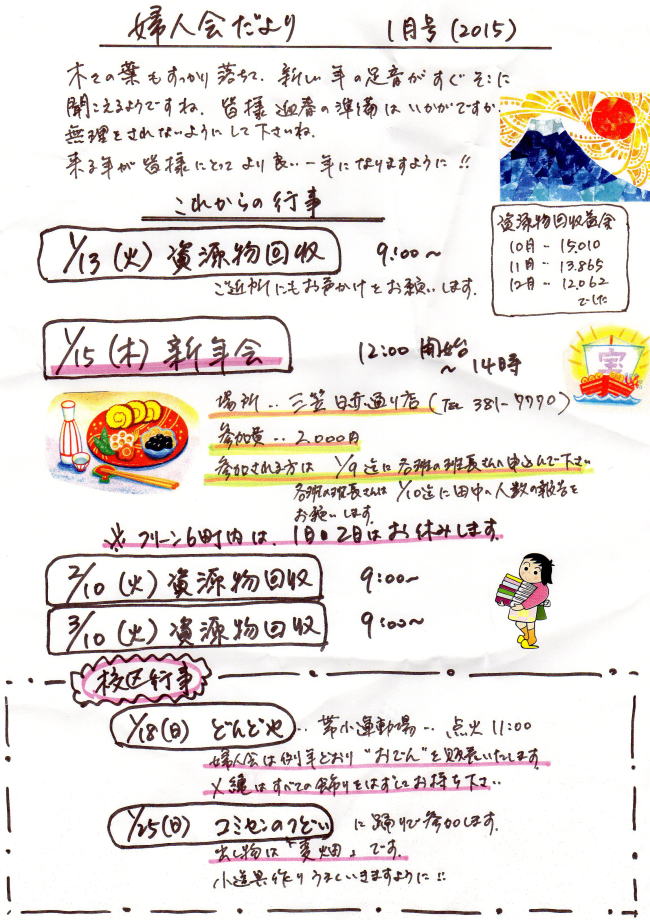 婦人会だより 1月号(2015)
木々の葉もすっかり落ちて、新しい年の足音がすぐそこに
聞こえるようですね。皆様迎春の準備はいかがですか。
無理をされないようにして下さいね。
来る年が皆様にとってより良い一年になりますように!!
これからの行事
資源物回収益金
10月‥15,010
11月‥13,865
12月‥12,062
でした
1/13(火)資源物回収 9:00~
ご近所にもお声かけをお願いします。
1/15(木)新年会 12:00開始~14時
宝
場所‥三笠 日赤通り店(TEL 381-7770)
参加費‥2,000円
参加される方は 1/9迄に各班の班長さんへ申込んで下さい
各班の班長さんは 1/10迄に田中へ人数の報告を
お願いします。
※クリーン6町内は、1月・2月はお休みします。
2/10(火)資源物回収 9:00~
3/10(火)資源物回収 9:00~
校区行事
1/18(日)どんどや‥帯小運動場‥点火11:00
婦人会は例年どおり"おでん"を販売いたします
〆縄はすべての飾りをはずしてお持ち下さい
1/25(日)コミセンのつどい に踊りで参加します。
出し物は「麦畑」です。
小道具作りうまくいきますように!!